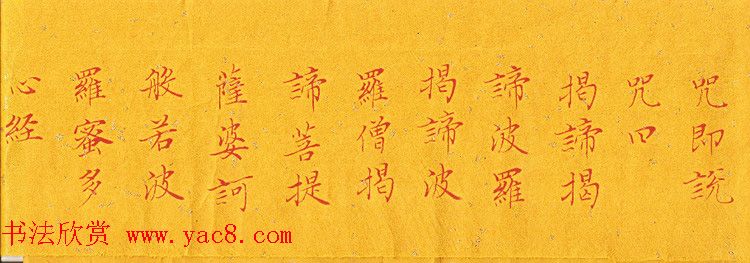 咒即說
咒曰
揭諦揭
諦波羅
揭諦波
羅僧揭
諦菩提
薩婆訶
般若波
羅蜜多
心経
书法欣赏 www.yac8.com